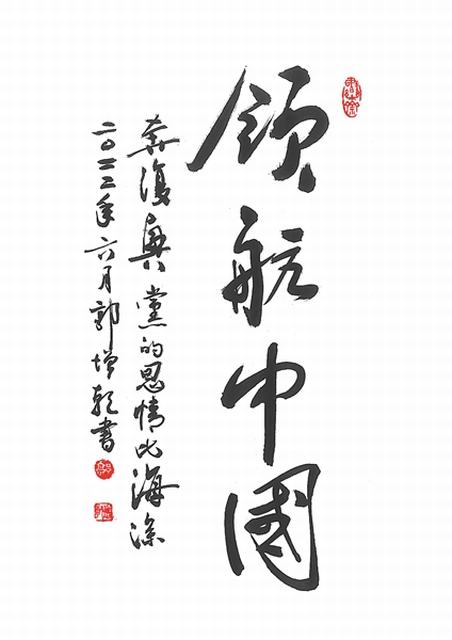 領航中國
奔復興黨的恩情比海深
二〇二二年六月郭增乾書